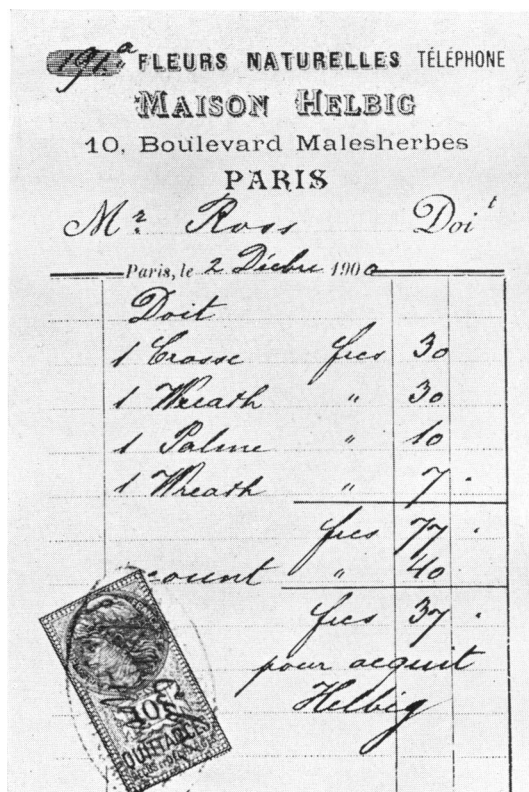 FLEURS NATURELLES TÉLÉPHONE
MAISON HELBIG
10, Boulevard Malesherbes
PARIS
Mr. Ross Doit
Paris, le 2 Décbre 1900
Doit
1 Crosse frcs 30
1 Wreath " 30
1 Palme " 10
1 Wreath " 7
frcs 77
count " 40
frcs 37
pour acquit
Helbig
10c
QUITTANCES